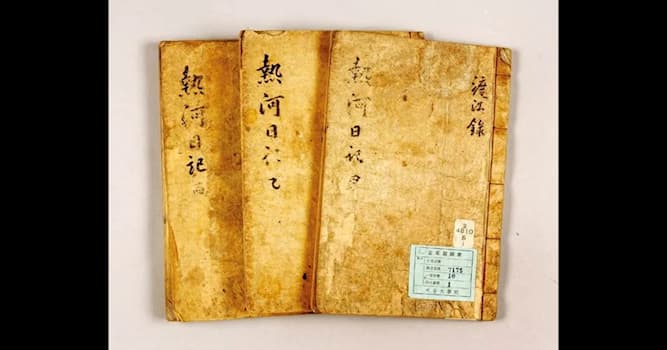 渡江錄
熱河日記 甲
熱河日記 乙
熱河日記 丙
4810
1
7175
10
1